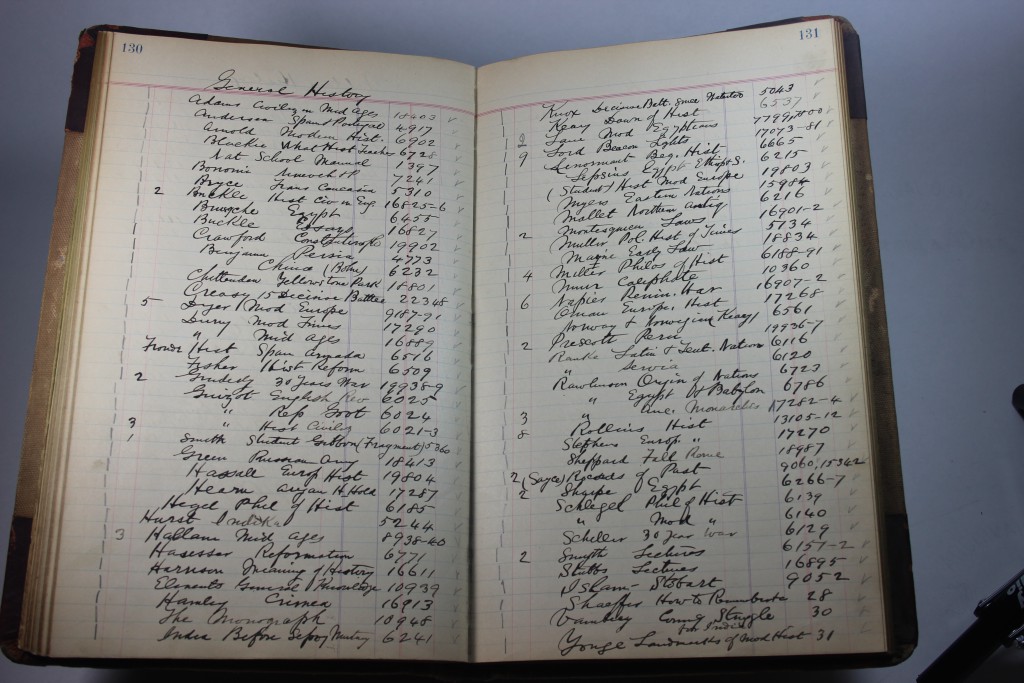 130
General History
Adams Civiliz in Mid Ages 18403
Anderson Span & Portugal 4917
Arnold Modern Hist. 6902
Blackie What Hist Teaches 6728
Nat School Manual 397
Bonomi Nineveh + P 7261
Bryce Trans Caucasia 5310
2 Buckle Hist Civ in Eng 16825-6
Brugsche Egypt 6455
Buckle Essays 16827
Crawford 19902
Benjamin Persia 4773
China (Bothe) 6232
Chittenden Yellowstone Park 18801
Creasy 15 Decisive Battles 22348
5 Dyer Mod Europe 9187-91
Duruy Mod Times 17290
" Mid Ages 16889
Froude Hist Span Armada 6516
Fisher Hist Reform 6509
2 Gindely 30 Years War 19938-9
Guizot English Rev 6025
" Rep Govt 6024
3 " Hist Civiliz 6021-3
1 Smith Student Gibbon (Fragment) 5360
Green Russian Army 18413
Hassall Europ Hist 19804
Hearn Aryan H. Hold 17287
Hegel Phil of Hist 6185
Hurst Indika 5244
3 Hallam Mid Ages 8938-40
Hasesser Reformation 6771
Harrison Meaning of History 16611
Elements General Knowledge 10939
Hamley Crimea 16913
The Monograph 10948
India Before Sepoy Mutiny 6241
131
Knox Decisive Batt. Since Waterloo 5043
Keary Dawn of Hist 6537
2 Lane Mod Egyptians
9 Lord Beacon Lights 17073-81
Lenormant Beg. Hist 6665
Lepsius Egypt Ethiop + S. 6215
(Student) Hist Mod Europe 19803
Myers Eastern Nations 15984
Mallet Northern Antiq 6216
2 Montesquieu Laws 16901-2
Muller Pol. Hist of Times 5734
Mayne Early Law 18834
4 Miller Philos of Hist 6188-91
Muir Caliphate 10360
6 Napier Penin. War 16907-2
Oman Europe Hist 17268
Norway & Norwegian (Keary) 6561
2 Prescott Peru 19936-7
Ranke Latin & Teut. Nations 6116
" Servia 6120
Rawlinson Origin of Nations 6723
" Egypt & Babylon 6786
3 " Anc. Monarchies 17282-4
8 Rollins Hist 13105-12
Stephens Europ. " 17270
Sheppard Fall Rome 18987
2 (Sayce) Records of Past 9060, 15342
2 Sharpe Egypt 6266-7
Schlegel Phil of Hist 6139
" Mod " 6140
Schiller 30 Year War 6129
2 Smyth Lectures 6157-2
Stubbs Lectures 16895
D Isham - Stobart 9052
Shaeffer How to Remember 28
Vambery Coming Struggle for India 30
Yonge Landmarks of Mod Hist 31